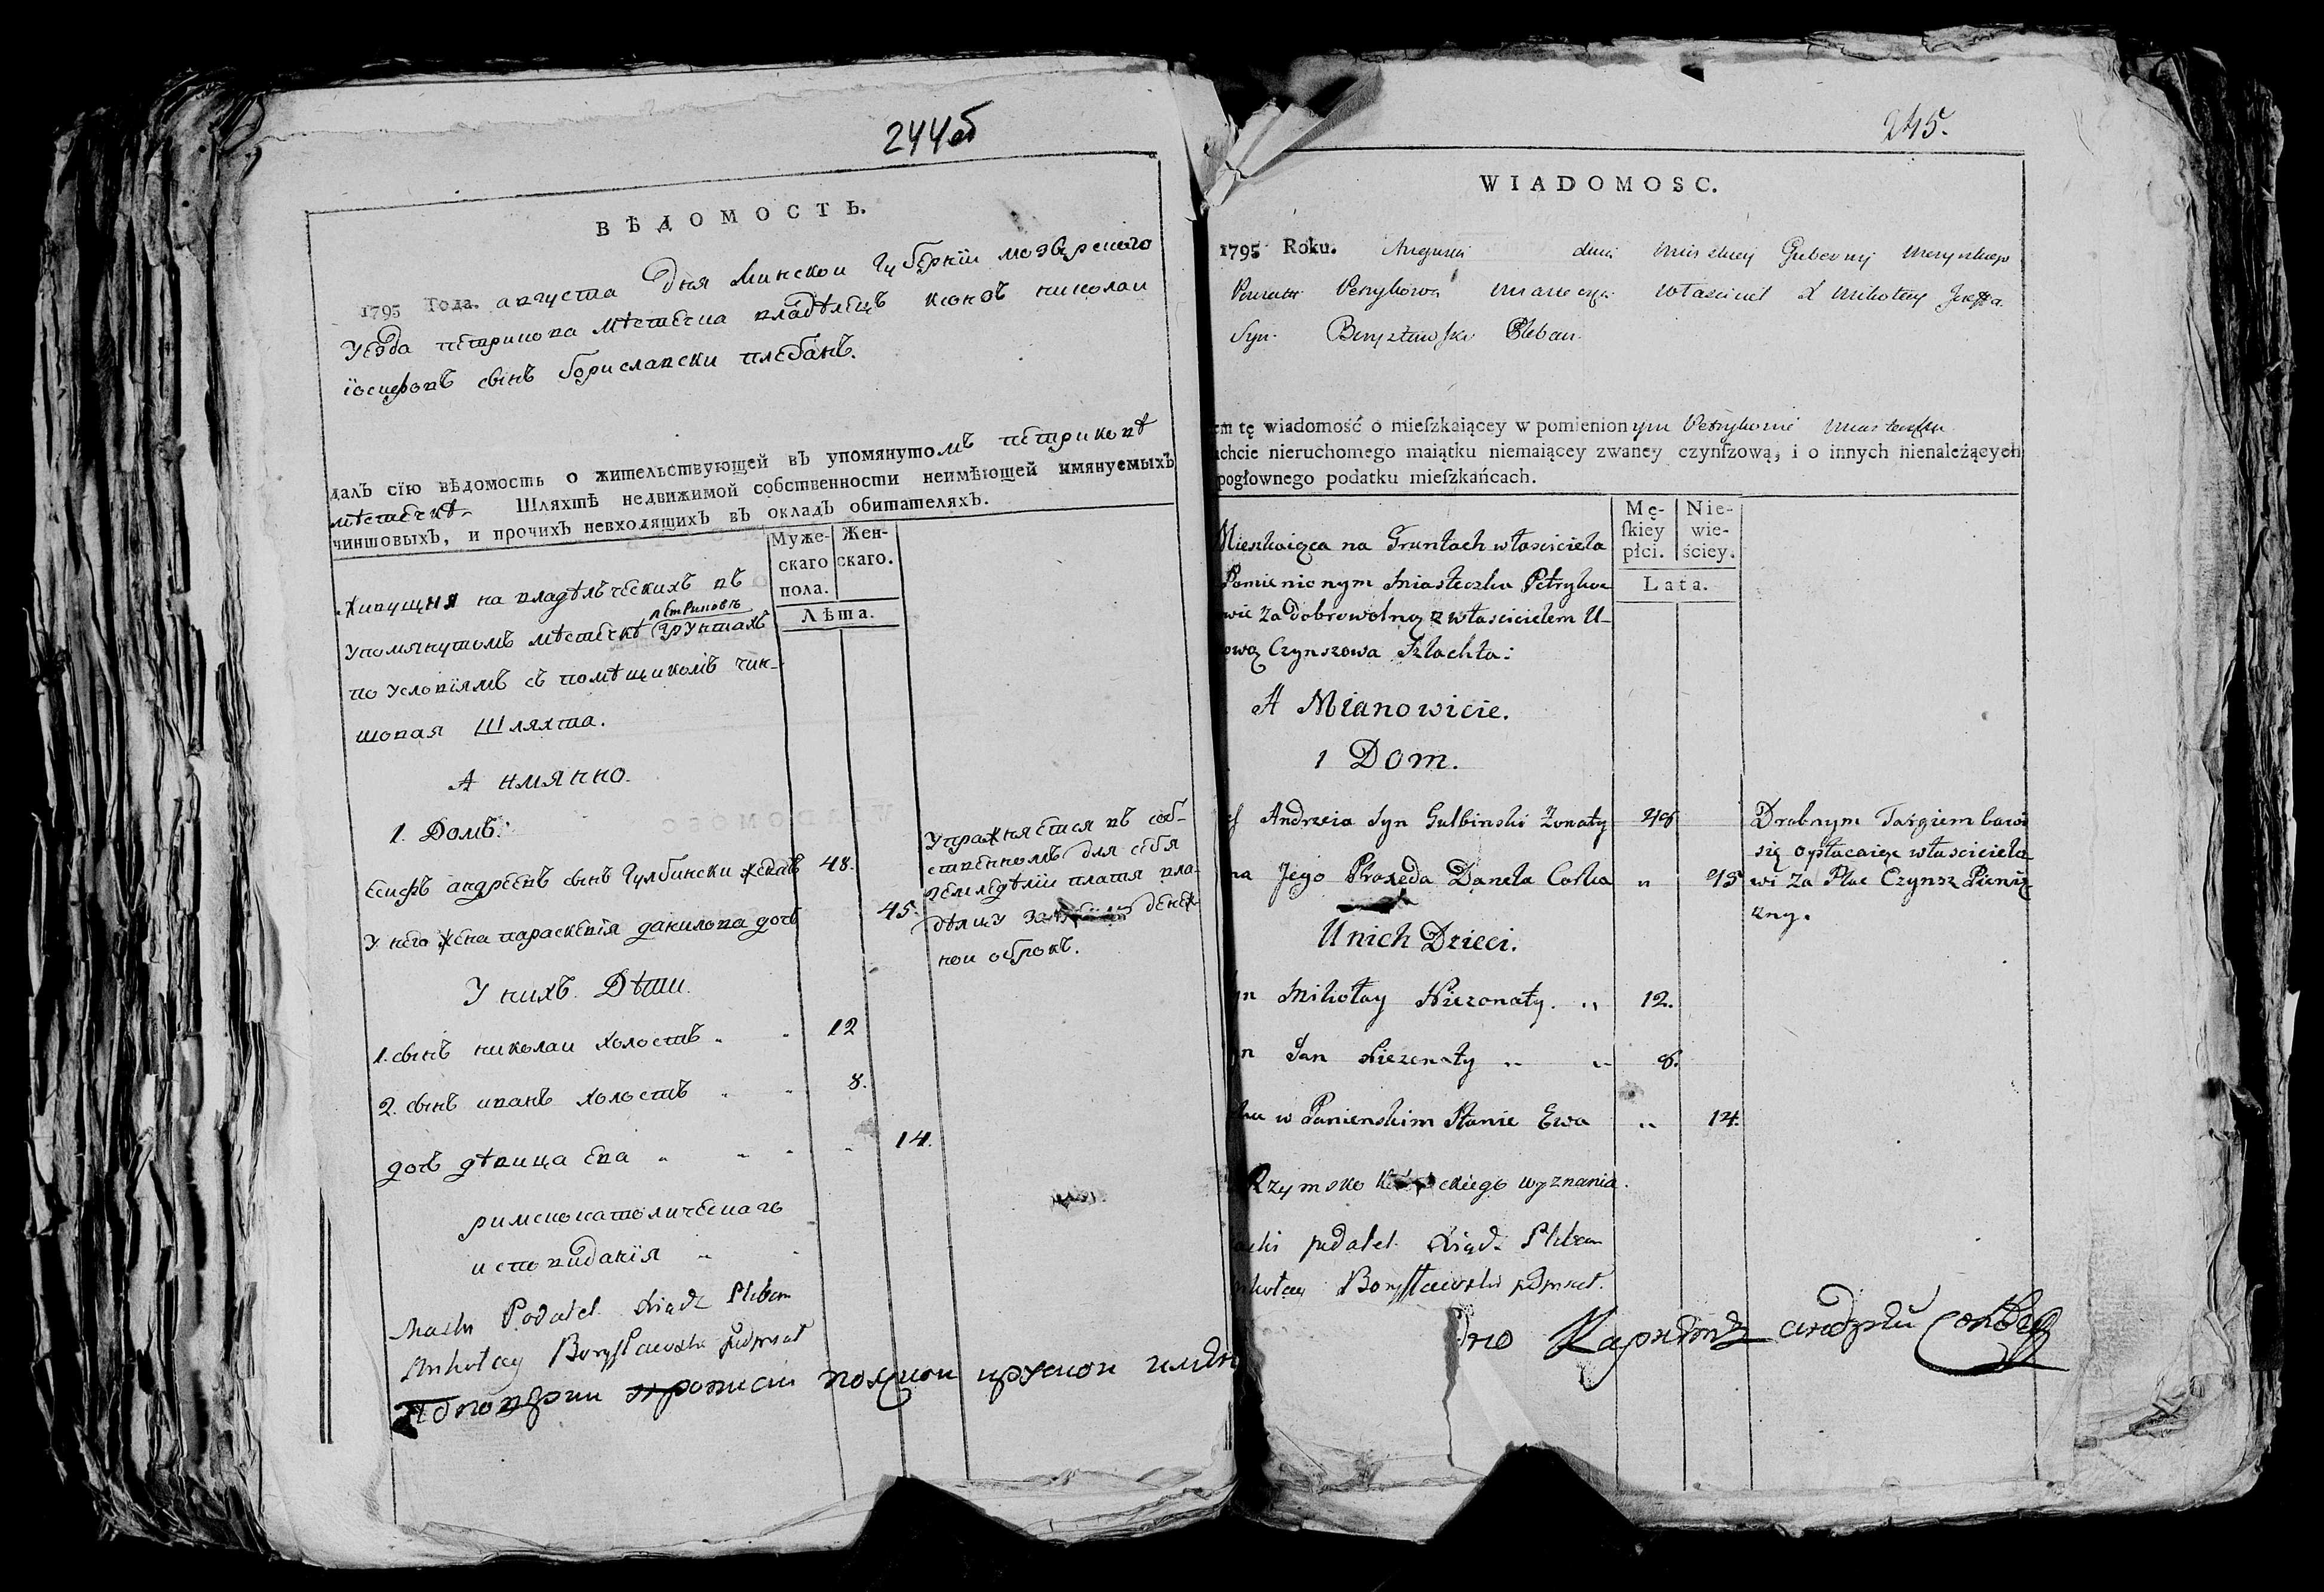 244об
ВѢДОМОСТЬ.
1795 Года. августа дня Минской губернїи мозырского
уезда петрикова мѣстечка владѣлецъ ксенѕъ николаи
їосифовъ сынъ бориславски плебанъ.
далъ сїю вѣдомость о жительствующей въ упомянутомъ петриковѣ
мѣстечкѣ Шляхтѣ недвижимой собственности неимѣющей имянуемыхъ
чиншовыхъ, и прочихъ невходящихъ въ окладъ обитателяхъ.
Муже-
скаго
пола.
Жен-
скаго.
Лѣта.
живущия на владѣлческихъ въ
петриковъ
упомянутомъ мѣстечкѣ грунтахъ
по условїямъ съ помѣщикомъ чин-
шовая Шляхта.
А имянно.
1. Домъ.
есифъ андреевъ сынъ гулбински женатъ 48.
у него жена параскевїя данилова дочь 45.
упражняется въ соб-
ственномъ для себя
земледѣлїи платя вла-
дѣлцу денеж-
нои оброкъ.
У нихъ Дѣти.
1. сынъ николаи холостъ „ „ 12
2. сынъ иванъ холостъ „ „ 8.
дочь дѣвица ева „ „ „ „ 14.
римскокатолическаго
исповиданїя „ „
Podatel Xiądz Pleban
Mikołay Borysławski
245.
WIADOMOSC.
1795 Roku. Augusta dnia Minskiey Gubernij Mozyrskiego
Powiatu Petrykowa Miasteczka właściciel X Mikołay Jozefa
Syn Borysławski Pleban.
em tę wiadomość o mieſzkaiącey w pomienionym Petrykowie Miasteczku
achcie nieruchomego maiątku niemaiącey zwaney czynſzową, i o innych nienależących
pogłownego podatku mieſzkańcach.
Mę-
ſkiey
płci.
Nie-
wie-
ściey.
Lata.
Mieszkaiąca na Gruntach własciciela
Pomienionym Miasteczku Petryko-
wie za dobrowolną z własciciełem U-
ową Czynszowa Szlachta:
A Mianowicie.
1 Dom.
ef Andrzeia Syn Gulbinski Zonaty 48
na Jego Praxeda Daneła Corka „ 45
Drobnym Targiem bawi
się opłacaiąc własciciela
wi za Plac Czynsz Pienię
zny.
U nich Dzieci.
yn Mikołay Niezonaty. „ 12.
yn Jan Niezonaty „ „ 8.
rka w Panienskim Stanie Ewa „ 14.
Rzymsko ckiego wyznania.
podatel Xiądz Pleban
Mikołay Borysławski
андрѣи